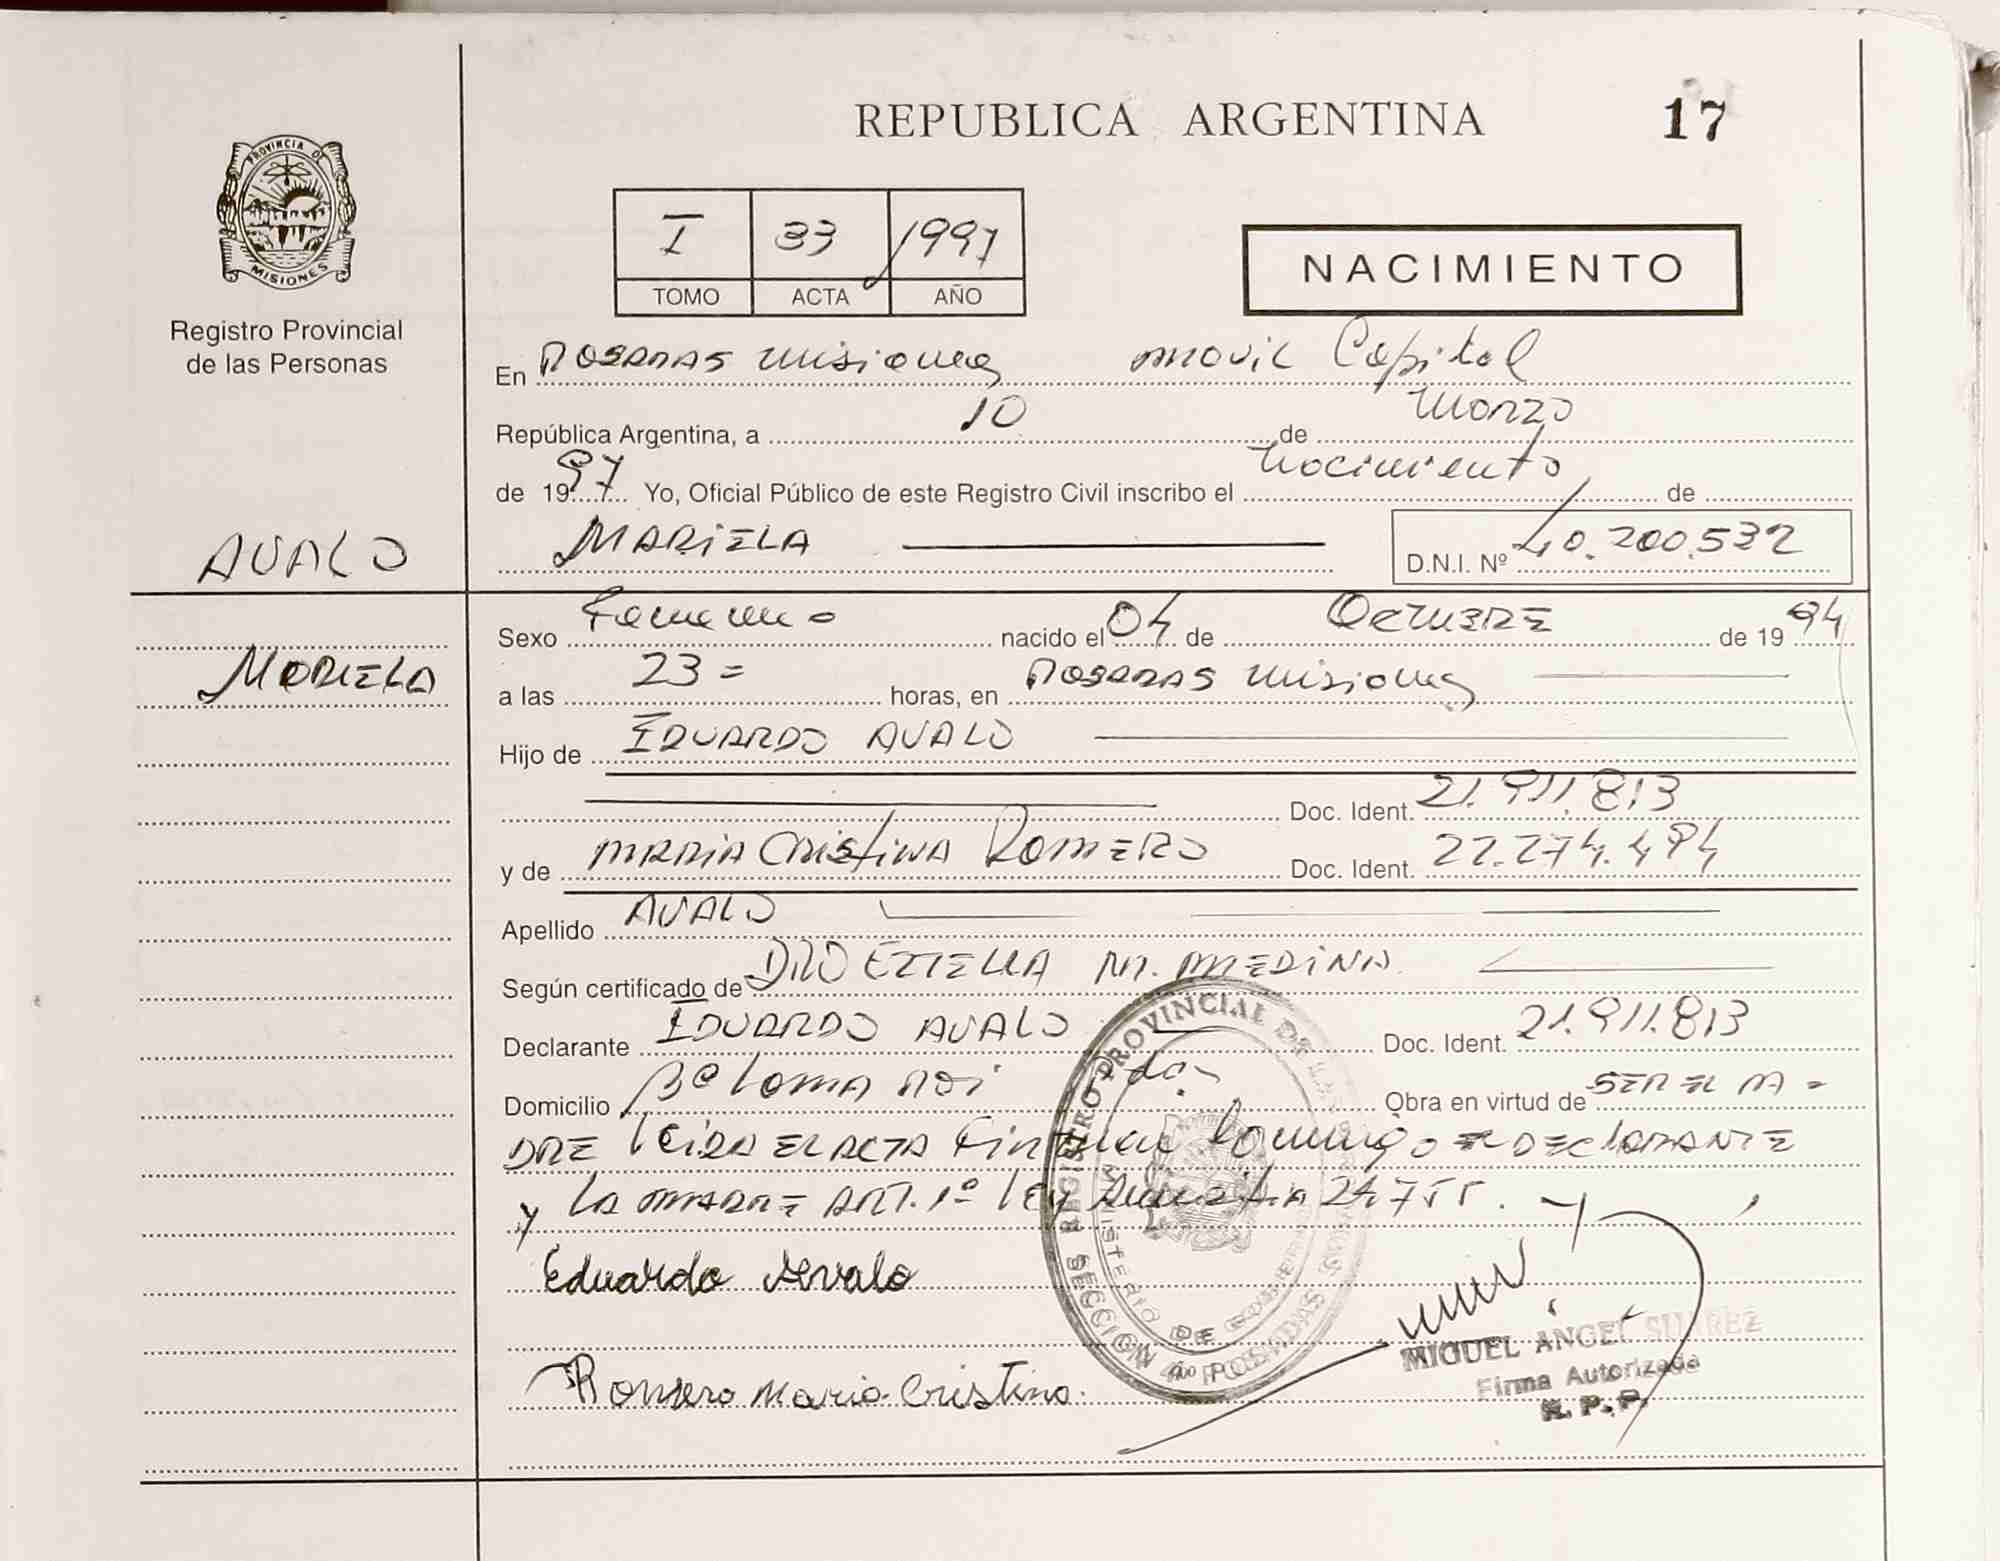 REPUBLICA ARGENTINA 17
PROVINCIA DE
MISIONES
Registro Provincial
de las Personas
I 33 1997
TOMO ACTA AÑO
NACIMIENTO
En Posadas Misiones Movil Capital
República Argentina, a 10 de Marzo
de 1997 Yo, Oficial Público de este Registro Civil inscribo el Nacimiento de
AVALO
MARIELA D.N.I. Nº 40.200.532
MARIELA
Sexo Femenino nacido el 04 de OCTUBRE de 1994
a las 23 = horas, en Posadas Misiones
Hijo de EDUARDO AVALO
Doc. Ident. 21.911.813
y de MARIA CRISTINA ROMERO Doc. Ident. 22.274.494
Apellido AVALO
Según certificado de M. MEDINA
Declarante EDUARDO AVALO Doc. Ident. 21.911.813
Domicilio Bº LOMA POI Pdas Obra en virtud de SER EL PA=
DRE LEIDA EL ACTA Firman Conmigo EL DECLARANTE
Y LA MADRE ART. 1º LEY Amnistia 24755.
Eduardo Avalo
Romero Maria Cristina
REGISTRO PROVINCIAL DE LAS PERSONAS
MINISTERIO DE GOBIERNO
SECCION POSADAS
MIGUEL ANGEL SUAREZ
Firma Autorizada
R. P. P.